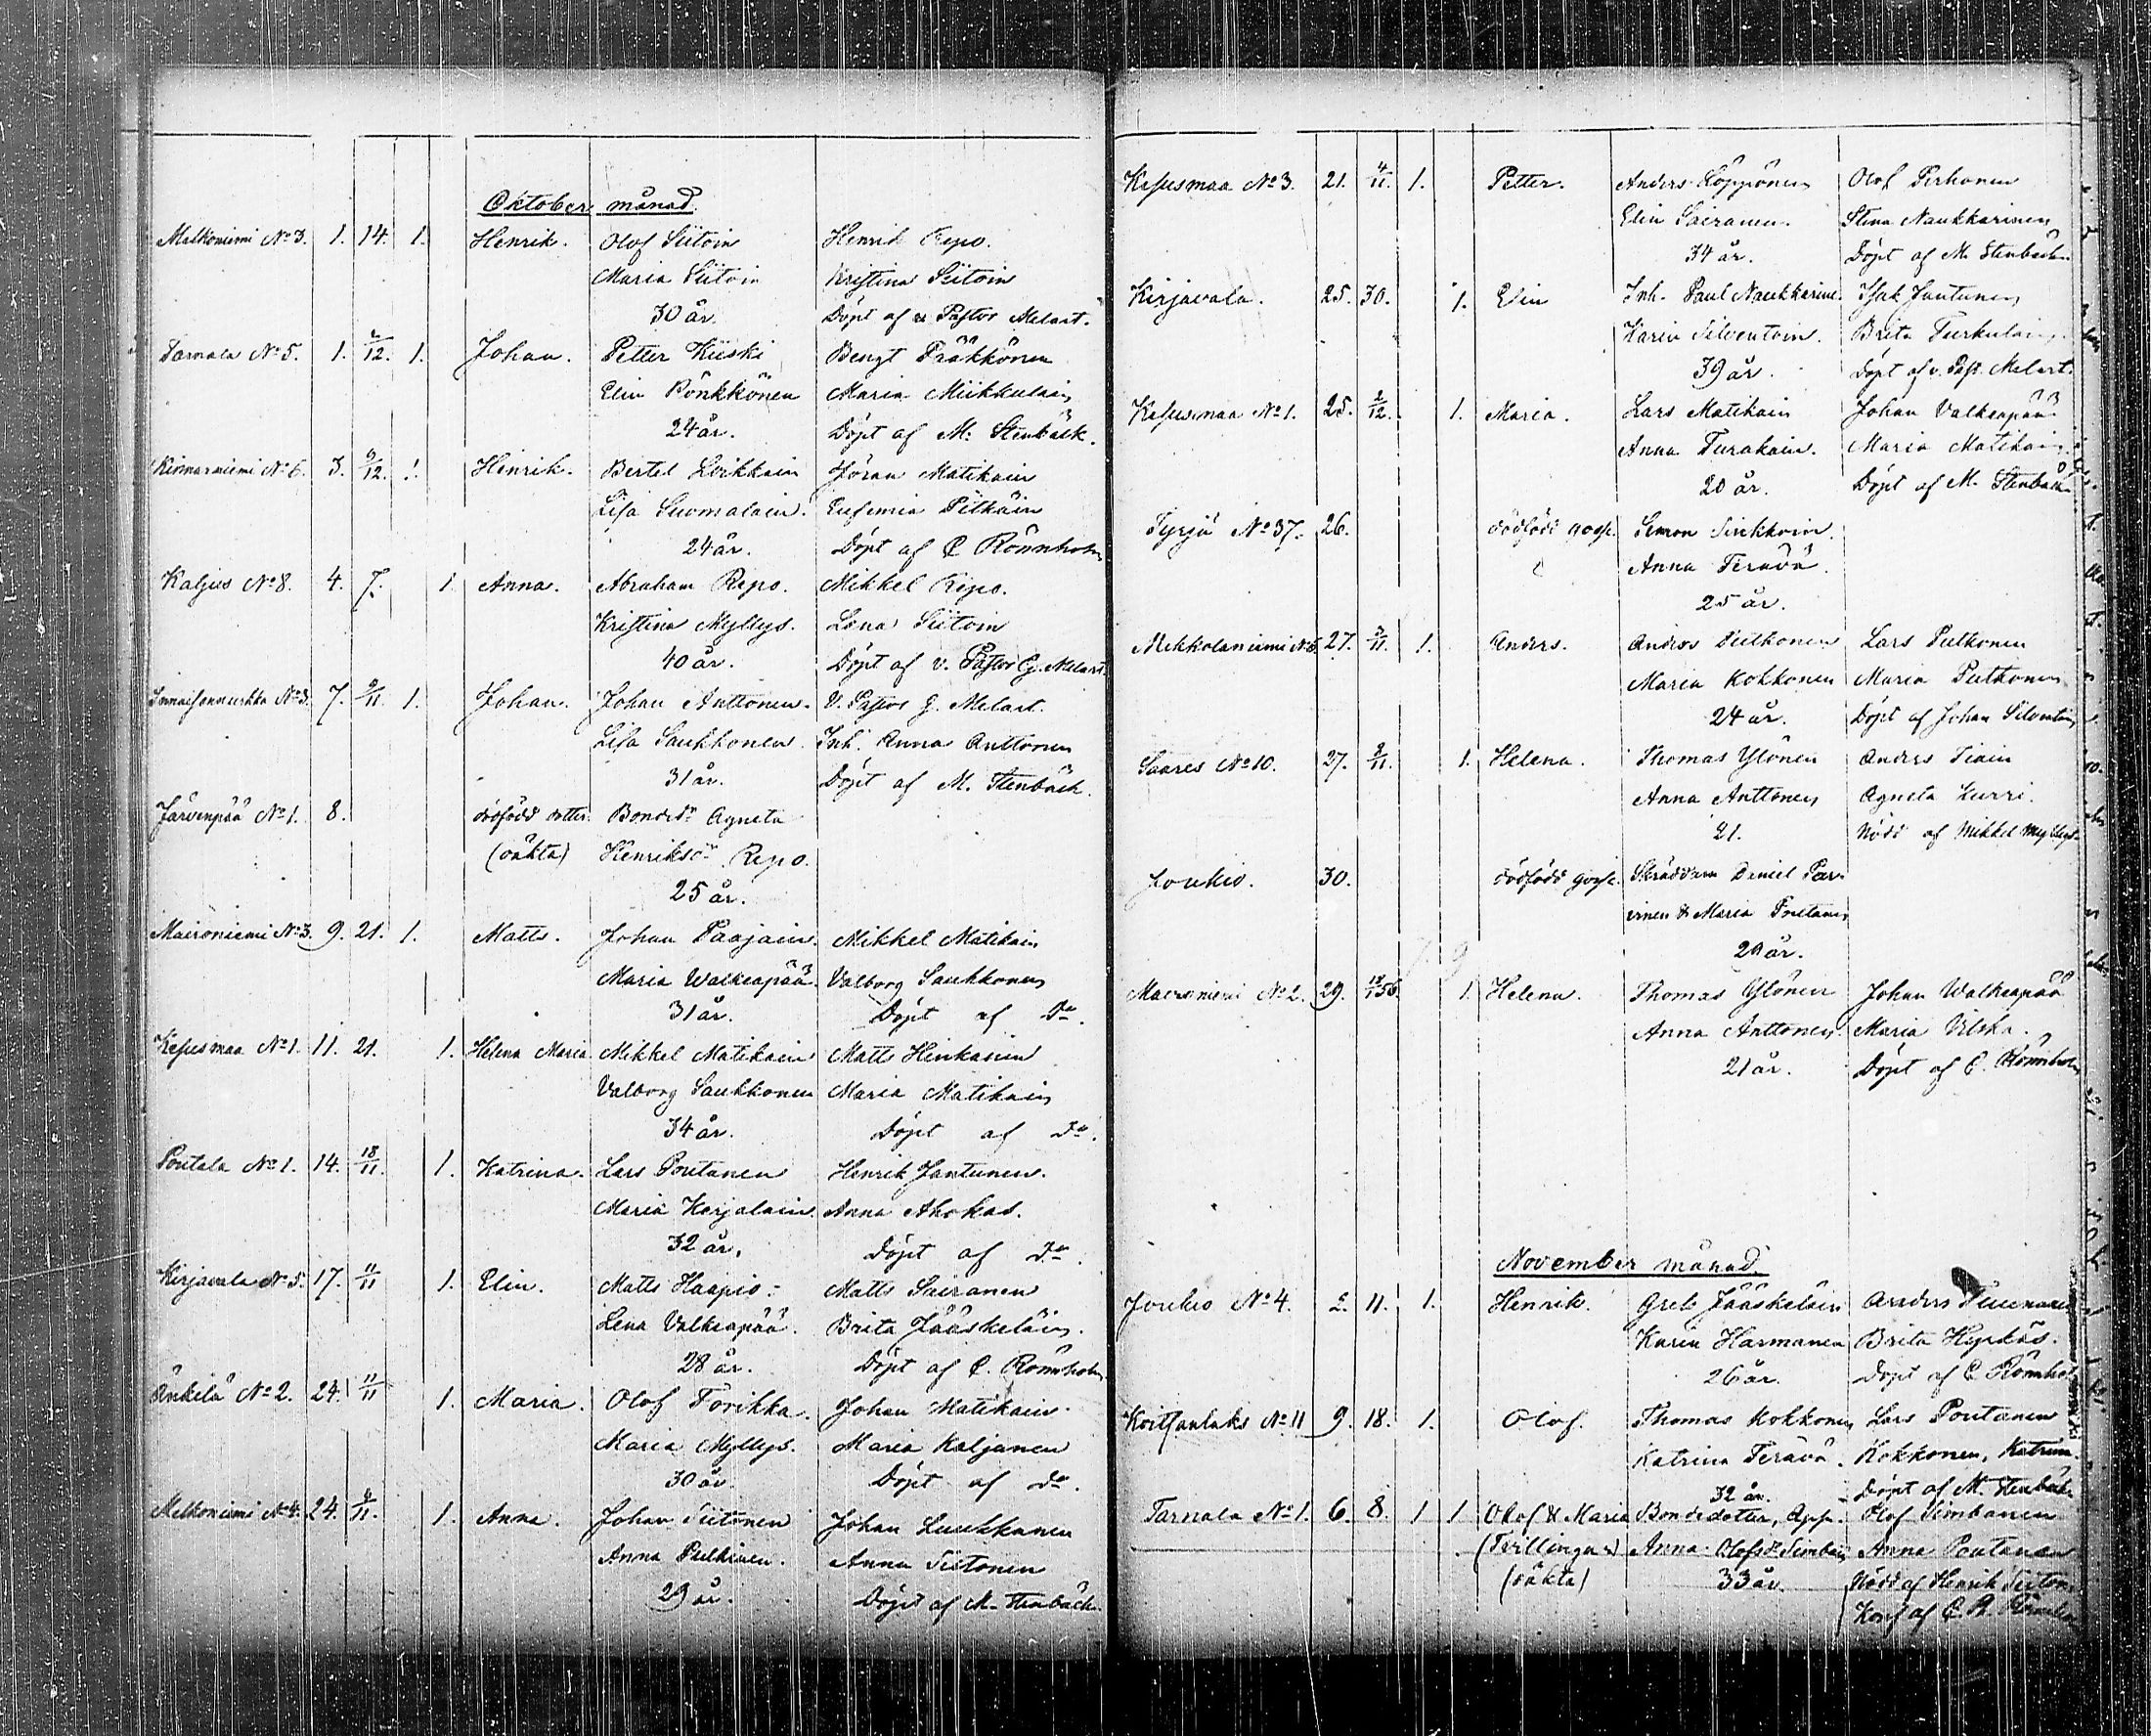 Oktober månad.
Melkoniemi No 3. 1. 14. 1. Henrik. Olof Siitoin Henrik Repo.
Maria Siitoin Kristina Siitoin
30 år. Döpt af v. Pastor Melart.
Tarnala No 5. 1. /12. 1. Johan. Petter Kiiski Bengt Präkkönen
Elin Rönkkönen Maria Miikkulain
24 år. Döpt af M. Stenbäck.
No 6. 3. /12. 1. Henrik. Bertel Loikkain Jöran Matikain
Lisa Suomalain. Eufemia Pitkäin
24 år. Döpt af C Rönnholm
Kaljus No 8. 4. 7. 1. Anna. Abraham Repo. Mikkel Repo.
Kristina Myllys. Lena Siitoin
40 år. Döpt af v. Pastor G. Melart.
No 3. 7. 9/11. 1. Johan. Johan Anttonen. V. Pastor G. Melart.
Lisa Saukkonen. Inh. Anna Anttonen
31 år. Döpt af M. Stenbäck.
Järvenpää No 1. 8. dödfödd dotter. Bonded:r Agneta
(oäkta) Henriksd:r Repo.
25 år.
Maironiemi No 3. 9. 21. 1. Matts. Johan Paajain. Mikkel Matikain
Maria Walkeapää. Valborg Saukkonen
31 år. Döpt af Do.
Kesusmaa No 1. 11. 21. 1. Helena Maria Mikkel Matikain Matts Hinkanen
Valborg Saukkonen Maria Matikain
34 år. Döpt af Do.
Poutala No 1. 14. 18/11. 1. Katrina. Lars Poutanen Henrik Jantunen.
Maria Karjalain. Anna Ahokas.
32 år. Döpt af Do.
Kirjavala No 5. 17. 11/11 1. Elin. Matts Haapio. Matts Sairanen
Lena Valkeapää. Brita Jääskeläin.
28 år. Döpt af C. Rönnholm
Änkilä No 2. 24. 11/11 1. Maria. Olof Torikka. Johan Matikain.
Maria Myllys. Maria Kaljunen
30 år. Döpt af Do.
Melkoniemi No 4. 24. /11. 1. Anna. Johan Siitonen Johan Luukkanen
Anna Pulkinen. Anna Siitonen
29 år. Döpt af M. Stenbäck.
Kesusmaa No 3. 21. 4/11. 1. Petter. Anders Köppönen Olof Pirhonen
Elin Sairanen. Stina Naukkarinen
34 år. Döpt af M. Stenbäck.
Kirjavala. 25. 30. 1. Elin Inh. Paul Naukkarine. Isak Jantunen
Karin Silventoin. Brita Turkulain.
39 år. Döpt af v. Past. Melart.
Kesusmaa No 1. 25. 2/12. 1. Maria. Lars Matikain Johan Valkeapää
Anna Turakain. Maria Matikain
20 år. Döpt af M. Stenbäck
Tyrjä No 37. 26. dödfödd gosse. Simon Sinkkoin.
Anna Terävä.
25 år.
Mikkolanniemi No 5. 27. /11. 1. Anders. Anders Pulkonen Lars Pulkonen
Maria Kokkonen Maria Putkonen
24 år. Döpt af Johan Silventoin
Saares No 10. 27. /11. 1. Helena. Thomas Ylönen Anders Tiain
Anna Anttonen Agneta Kurri.
21. Nödd af Mikkel Myllys
Joukio. 30. dödfödd gosse. Skräddaren Daniel Par-
inen & Maria
29 år.
Maironiemi No 2. 29. 1. Helena. Thomas Ylönen Johan Walkeapää
Anna Anttonen. Maria Vilska.
21 år. Döpt af C. Rönnholm
November månad.
Joukio No 4. 2. 11. 1. Henrik. Grels Jääskeläin Anders
Karin Harmanen Brita Hyrkäs.
26 år. Döpt af C Rönnhol
Koitsanlaks No 11 9. 18. 1. Olof. Thomas Kokkonen Lars Poutanen
Katrina Terävä. Kokkonen, Katrina.
32 år. Döpt af M. Stenbäck
Tarnala No 1. 6. 8. 1 1 Olof & Maria Bondedotter, App. Olof Simbanen
(Tvillingar) Anna Olofsd:r Anna Poutanen
(oäkta) 33 år. Nödd af Henrik Siiton